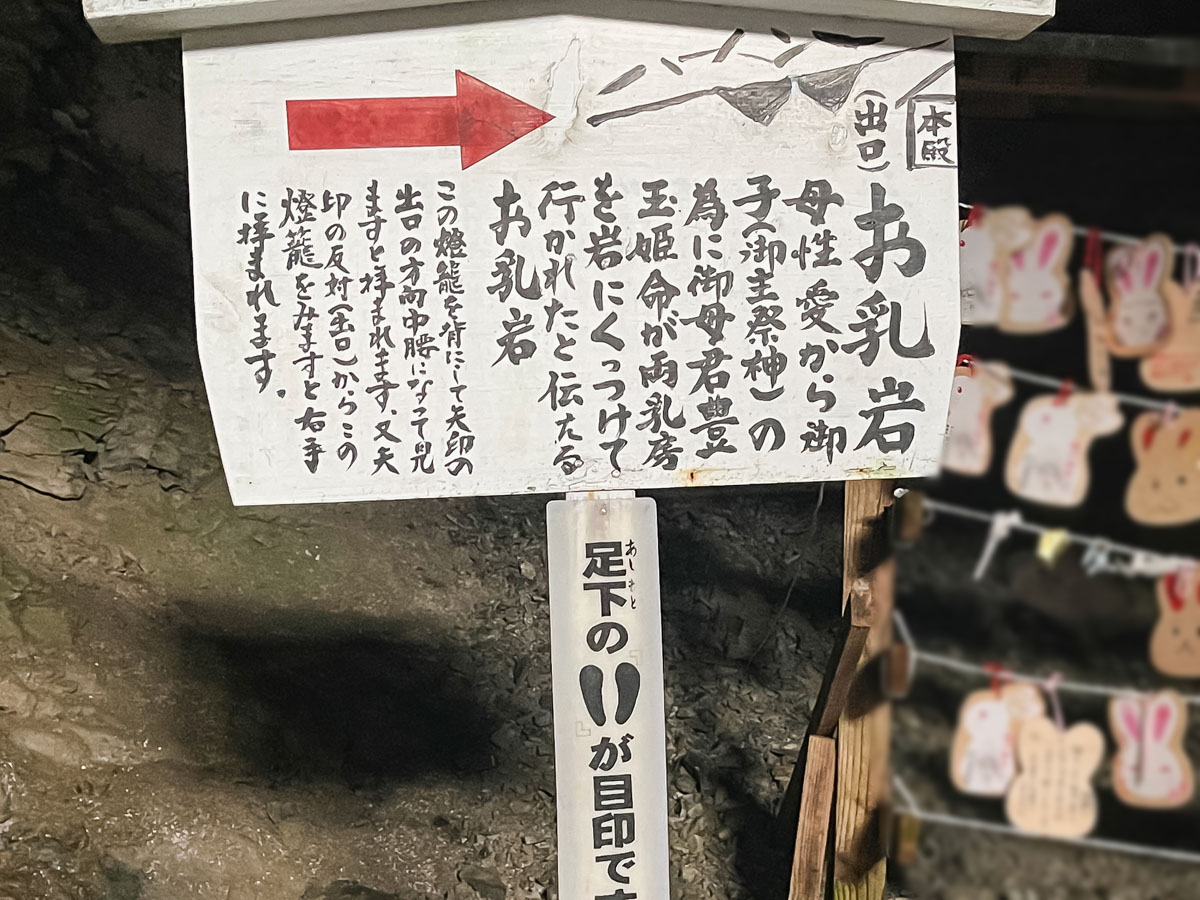 本殿
(出口)
お乳岩
母性愛から御
子(御主祭神)の
為に御母君豊
玉姫命が両乳房
を岩にくっつけて
行かれたと伝たる
お乳岩
この燈籠を背にして矢印の
出口の方向中腰になって見
ますと拝まれます、又矢
印の反対(出口)からこの
燈籠をみますと右手
に拝まれます。
足下の『』が目印です
あしもと